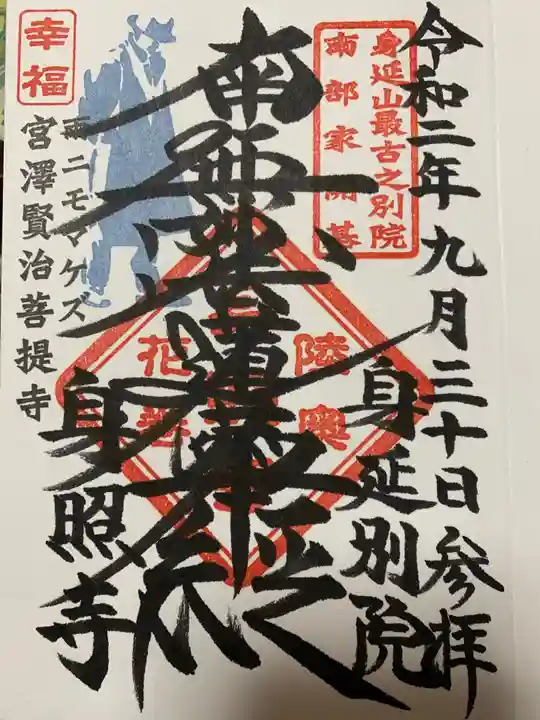 令和二年九月三十日参拝
身延山最古之別院
南部家開基
身延別院
南無妙法蓮華経
陸奥
花
善
幸福
雨ニモマケズ
宮澤賢治菩提寺
身照寺